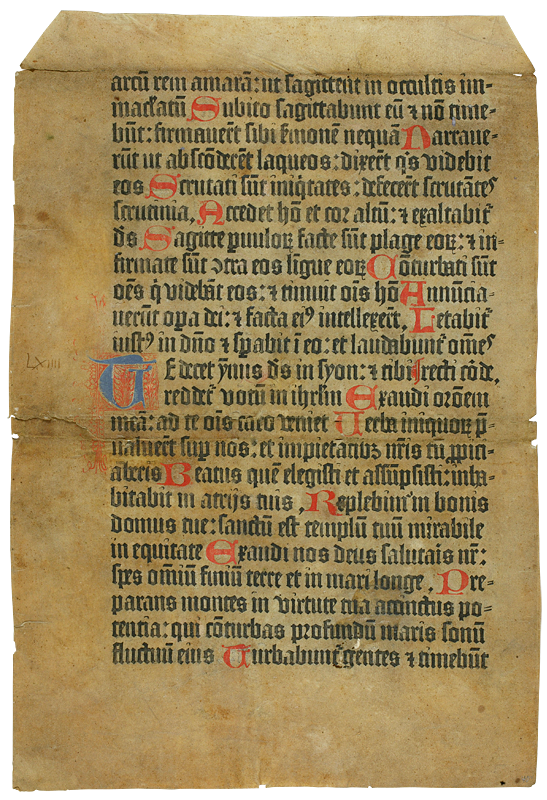 arcū rem amarā: ut sagittent in occultis im-
maclatū Subito sagittabunt eū & nō time-
būt: firmauer̄t sibi s̄monē nequā Narraue-
rūt ut absco᷒deret laqueos: dixer̄t q̄s videbit
eos Scrutati sūt iniq̄tates: defecer̄t scrutātes
scrutinia. Accedet hō et cor altū: & exaltabit᷒
d̄s Sagitte ꝑuuloꝝ facte sūt plage eoꝝ: & in-
firmate sūt ↄtra eos līgue eoꝝ Cōturbati sūt
oēs q̇ videbāt eos: & timuit oīs hō Annūcia-
uerūt oꝑa dei: & facta eiꝰ intellexer̄t. Letabit᷒
iustꝰ in dn̄o & sꝑabit ī eo: et laudabunt᷒ om̄es
LXIIII
TE decet ymnꝰ d̄s in syon: & tibi reddet᷒
votū in ihrl̄m Exaudi orōem
meā: ad te oīs caro veniet Verba iniquoꝝ p̄-
ualuer̄t suꝑ nos: et impietatibꝫ nr̄is tu ꝓpici-
aberis Beatus quē elegisti et assūpsisti: inha-
bitabit in atrijs tuis. Replebimꝰ in bonis
domus tue: sanctū est templū tuū mirabile
in equitate Exaudi nos deus salutar̄is nr̄:
spes om̄iū finiū terre et in mari longe. Pre-
parans montes in virtute tua accinctus po-
tentia: qui cōturbas profundū maris sonū
fluctuū eius Turbabunt᷒ gentes & timebūt